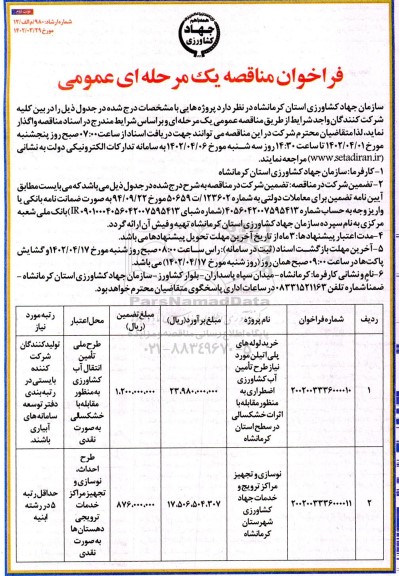 نوبت دوم
شماره ارشاد: ۹۸۰/م‌الف/۱۲
مورخ ۱۴۰۲/۰۳/۲۹
جهاد
کشاورزی
فراخوان مناقصه یک مرحله ای عمومی
سازمان جهاد کشاورزی استان کرمانشاه در نظر دارد پروژه هایی با مشخصات درج شده در جدول ذیل را در بین کلیه
شرکت کنندگان واجد شرایط از طریق مناقصه عمومی یک مرحله ای و بر اساس شرایط مندرج در اسناد مناقصه واگذار
نماید، لذا متقاضیان محترم شرکت در این مناقصه می توانند جهت دریافت اسناد از ساعت ۰۷:۰۰ صبح روز پنجشنبه
مورخ ۱۴۰۲/۰۴/۰۱ تا ساعت ۱۴:۳۰ روز سه شنبه مورخ ۱۴۰۲/۰۴/۰۶ به سامانه تدارکات الکترونیکی دولت به نشانی
(www.setadiran.ir) مراجعه نمایند.
۱- کارفرما: سازمان جهاد کشاورزی استان کرمانشاه
۲- تضمین شرکت در مناقصه: تضمین شرکت در مناقصه به شرح درج شده در جدول ذیل می باشد که می بایست مطابق
آیین نامه تضمین برای معاملات دولتی به شماره ۱۲۳۴۰۲/ت۵۰۶۵۹ مورخ ۹۴/۰۹/۲۲ به صورت ضمانت نامه بانکی یا
واریز وجه به حساب شماره ۴۰۵۶۰۴۲۰۰۷۵۹۵۴۱۳ (شماره شبای IR۰۹۰۱۰۰۰۴۰۵۶۰۴۲۰۰۷۵۹۵۴۱۳) بانک ملی شعبه
مرکزی به نام سپرده سازمان جهاد کشاورزی استان کرمانشاه تهیه و فیش آن ارائه گردد.
۴- مدت اعتبار پیشنهادها: ۳ ماه از تاریخ آخرین مهلت تحویل پیشنهادها می باشد.
۵- آخرین مهلت بازگشت اسناد (ثبت در سامانه): راس ساعت ۰۸:۰۰ صبح روز شنبه مورخ ۱۴۰۲/۰۴/۱۷ و گشایش
پاکت ها در ساعت ۰۹:۰۰ صبح همان روز (روز شنبه مورخ ۱۴۰۲/۰۴/۱۷) می باشد.
۶- نام و نشانی کارفرما: کرمانشاه - میدان سپاه پاسداران - بلوار کشاورز - سازمان جهاد کشاورزی استان کرمانشاه -
ضمنا شماره تلفن ۰۸۳۳۱۵۲۱۱۶۳ در ساعات اداری پاسخگوی متقاضیان محترم خواهد بود.
ردیف | شماره فراخوان | نام پروژه | مبلغ برآورد (ریال) | مبلغ تضمین (ریال) | محل اعتبار | رتبه مورد نیاز
۱ | ۲۰۰۲۰۰۳۳۳۶۰۰۰۰۱۰ | خرید لوله های پلی اتیلن مورد نیاز طرح تأمین آب کشاورزی اضطراری به منظور مقابله با اثرات خشکسالی در سطح استان کرمانشاه | ۲۳.۹۸۰.۰۰۰.۰۰۰ | ۱.۲۰۰.۰۰۰.۰۰۰ | طرح ملی تأمین انتقال آب کشاورزی به منظور مقابله با خشکسالی به صورت نقدی | تولیدکنندگان شرکت کننده بایستی در رتبه بندی دفتر توسعه سامانه های آبیاری باشند.
۲ | ۲۰۰۲۰۰۳۳۳۶۰۰۰۰۱۱ | نوسازی و تجهیز مراکز ترویج و خدمات جهاد کشاورزی شهرستان کرمانشاه | ۱۷.۵۰۶.۵۰۴.۳۰۷ | ۸۷۶.۰۰۰.۰۰۰ | طرح احداث، نوسازی و تجهیز مراکز خدمات ترویجی دهستان ها به صورت نقدی | حداقل رتبه ۵ در رشته ابنیه
ParsNamadData
۰۲۱-۸۸۳۴۹۶۷۰